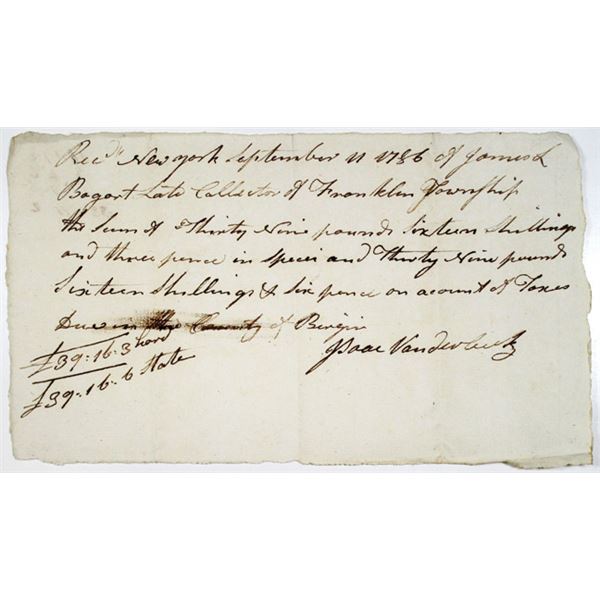 Recd New york September 11 1786 of James L
Bogart Late Collector of Franklin Township
the Sum of Thirty Nine pounds Sixteen Shillings
and three pence in specie and Thirty Nine pounds
Sixteen Shillings & Six pence on acount of Taxes
Due in the County of Bergin
£39:16:3 hard
£39:16:6 State
Isaac Vanderbeek